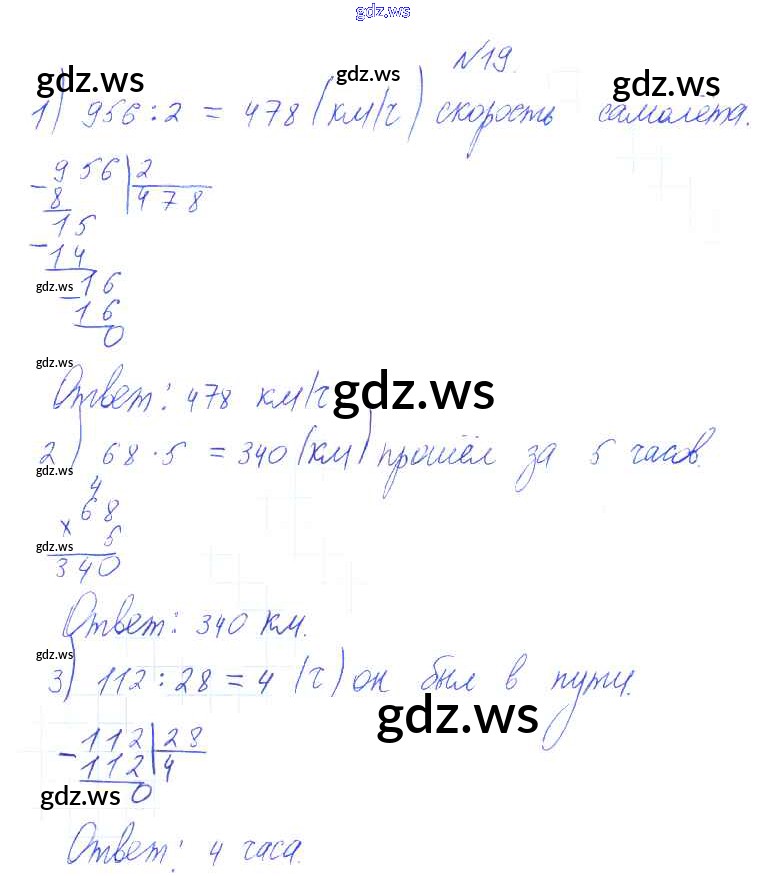 gdz.ws
№19.
gdz.ws gdz.ws gdz.ws
1) 956 : 2 = 478 (км/ч) скорость самолёта.
- 956 | 2
8 | 478
15
- 14
gdz.ws - 16
16
0
gdz.ws
Ответ: 478 км/ч
gdz.ws
2) 68 · 5 = 340 (км) прошёл за 5 часов.
gdz.ws
4
68
x 5
gdz.ws
340
Ответ: 340 км.
gdz.ws
3) 112 : 28 = 4 (ч) он был в пути.
gdz.ws
- 112 | 28
112 | 4
gdz.ws 0
Ответ: 4 часа.